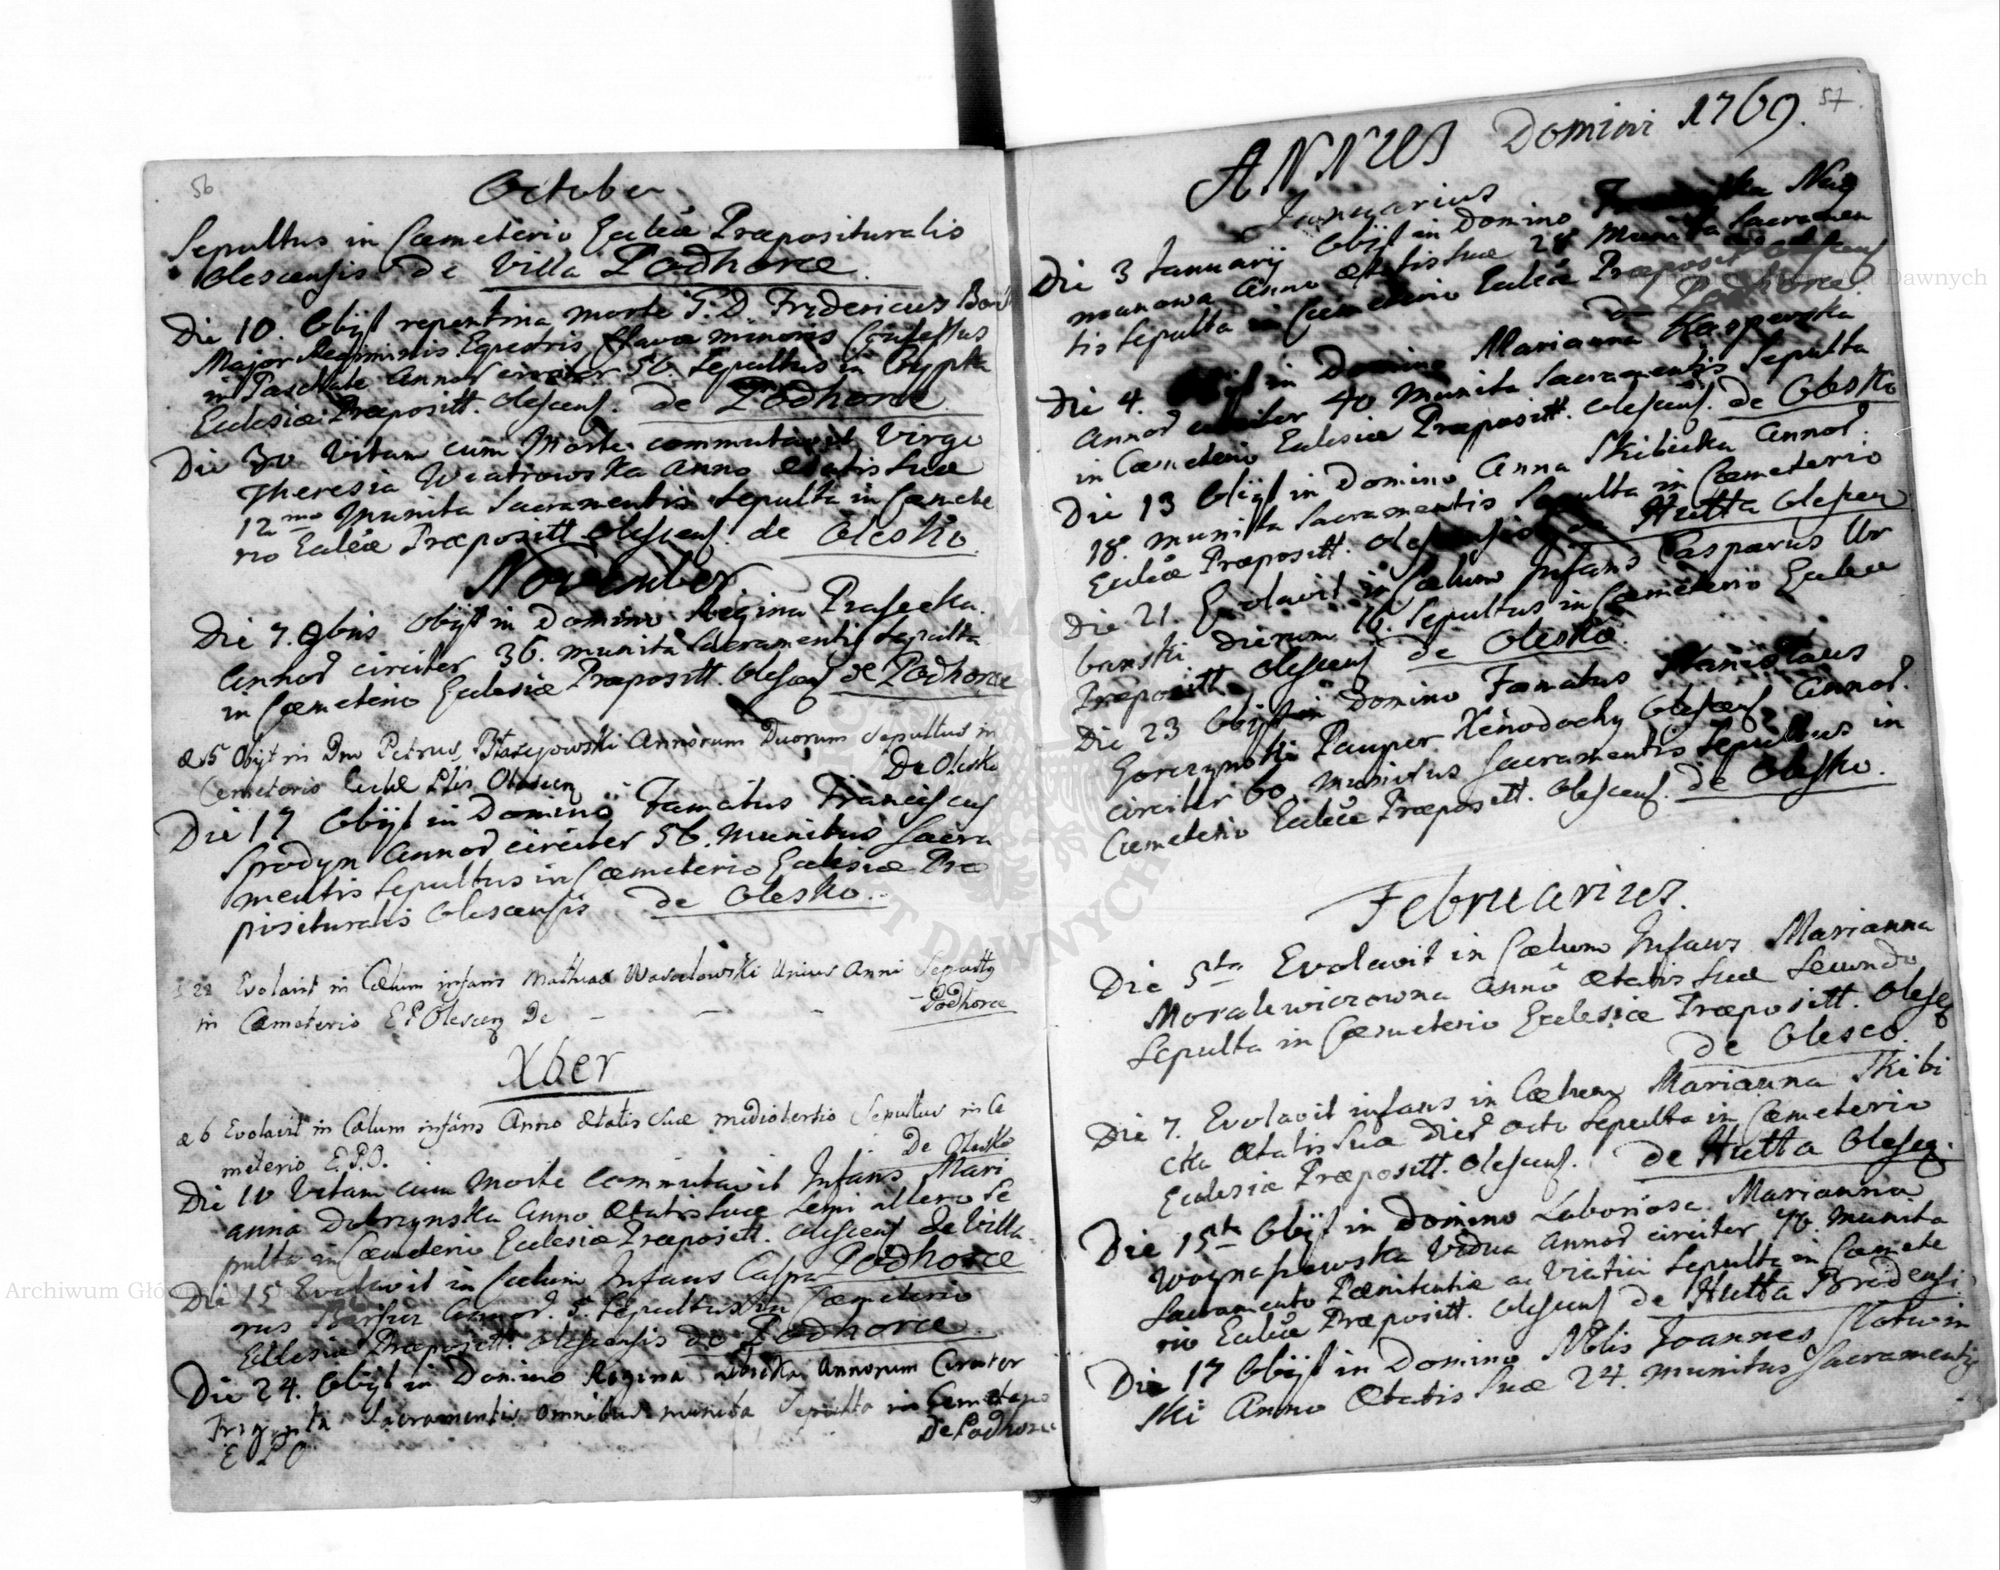 56
October
Sepultus in Cœmeterio Ecclæ Præposituralis
Olescensis de Villa Podhorce.
Die 10. Obijt repentina morte G. D. Fridericus
Major Regiminis Equestris minoris Confessus
in Paschate Annor circiter 56. Sepultus in Crypta
Ecclesiæ Præpositt. Olescens. de Podhorce
Die 30 Vitam cum Morte commutavit Virgo
Theresia Wiatrowska Anno ætatis suæ
12mo munita Sacramentis Sepulta in Cœmete
rio Ecclæ Præpositt Olescens. de Olesko.
November
Die 7. 9bris Obijt in Domino Regina Prasecka.
Annor circiter 36. munita Sacramentis Sepulta
in Cœmeterio Ecclesiæ Præpositt. Olescens de Podhorce
15 Obijt in Dno Petrus Błazejowski Annorum Duorum Sepultus in
Cemeterio Ecclæ Olescen De Olesko
Die 17 Obijt in Domino Famatus Franciscus
Sprodyn Annor circiter 56. munitus Sacra
mentis Sepultus in Cœmeterio Ecclesiæ Præ
posituralis Olescensis de Olesko.
28 Evolavit in Cælum infans Mathias Wasalowski Unius Anni Sepultus
in Cæmeterio E P Olescen De - - - Podhorce
Xber
6 Evolavit in Cælum infans Anno ætatis suæ mediotertio Sepultus in Cæ
meterio E. P. O. De Olesko
Die 10 Vitam cum Morte Commutavit Infans Mari
anna Dobrzynska Anno Ætatis suæ semi altero Se
pulta in Cœmeterio Ecclesiæ Præpositt. Olescens de Villa
Podhorce
Die 15 Evolavit in Cœlum Infans Caspa
rus Annor. 5. Sepultus in Cœmeterio
Ecclesiæ Præpositt. Olescensis de Podhorce.
Die 24. Obijt in Domino Regina Annorum Circiter
Triginta Sacramentis omnibus munita Sepulta in Cemeterio
E P O De Podhorce
57
ANNUS Domini 1769.
Januarius
Die 3 Januarij Obijt in Domino
Anno ætatis suæ 28 Munita Sacramen
tis Sepulta in Cœmeterio Ecclæ Præposit Olescens
de Podhorce
Die 4. Obijt in Domino Marianna Kasperska
Annor circiter 40 munita Sacramentis Sepulta
in Cœmeterio Ecclesiæ Præpositt. Olescens. de Olesko
Die 13 Obijt in Domino Anna Skibicka Annor.
18. munita Sacramentis Sepulta in Cœmeterio
Ecclæ Præpositt. Olescensis de Hutta Olescen
Die 21. Evolavit in Cœlum Infans Casparus Ur
banski Dierum 16. Sepultus in Cœmeterio Ecclæ
Præpositt Olescens de Olesko.
Die 23 Obijt in Domino Famatus Stanislaus
Gorczynski Pauper Xenodochij Olescens. Annor.
circiter 60. munitus Sacramentis Sepultus in
Cœmeterio Ecclæ Præpositt. Olescens. de Olesko.
Februarius.
Die 5ta Evolavit in Cœlum Infans Marianna
Moralewiczowna Anno Ætatis suæ Secundo
Sepulta in Cœmeterio Ecclesiæ Præpositt. Olescen
de Olesco.
Die 7. Evolavit infans in Cœlum Marianna Skibi
cka Ætatis suæ Dier octo Sepulta in Cœmeterio
Ecclesiæ Præpositt. Olescens. de Hutta Olescen.
Die 15ta Obijt in Domino Laboriosa Marianna
Vidua Annor circiter 70. Munita
Sacramento Pœnitentiæ ac Viatici Sepulta in Cœmete
rio Ecclæ Præpositt. Olescens de Hutta Brodensi
Die 17 Obijt in Domino Nblis Joannes Slotwin
ski Anno Ætatis suæ 24. munitus Sacramentis